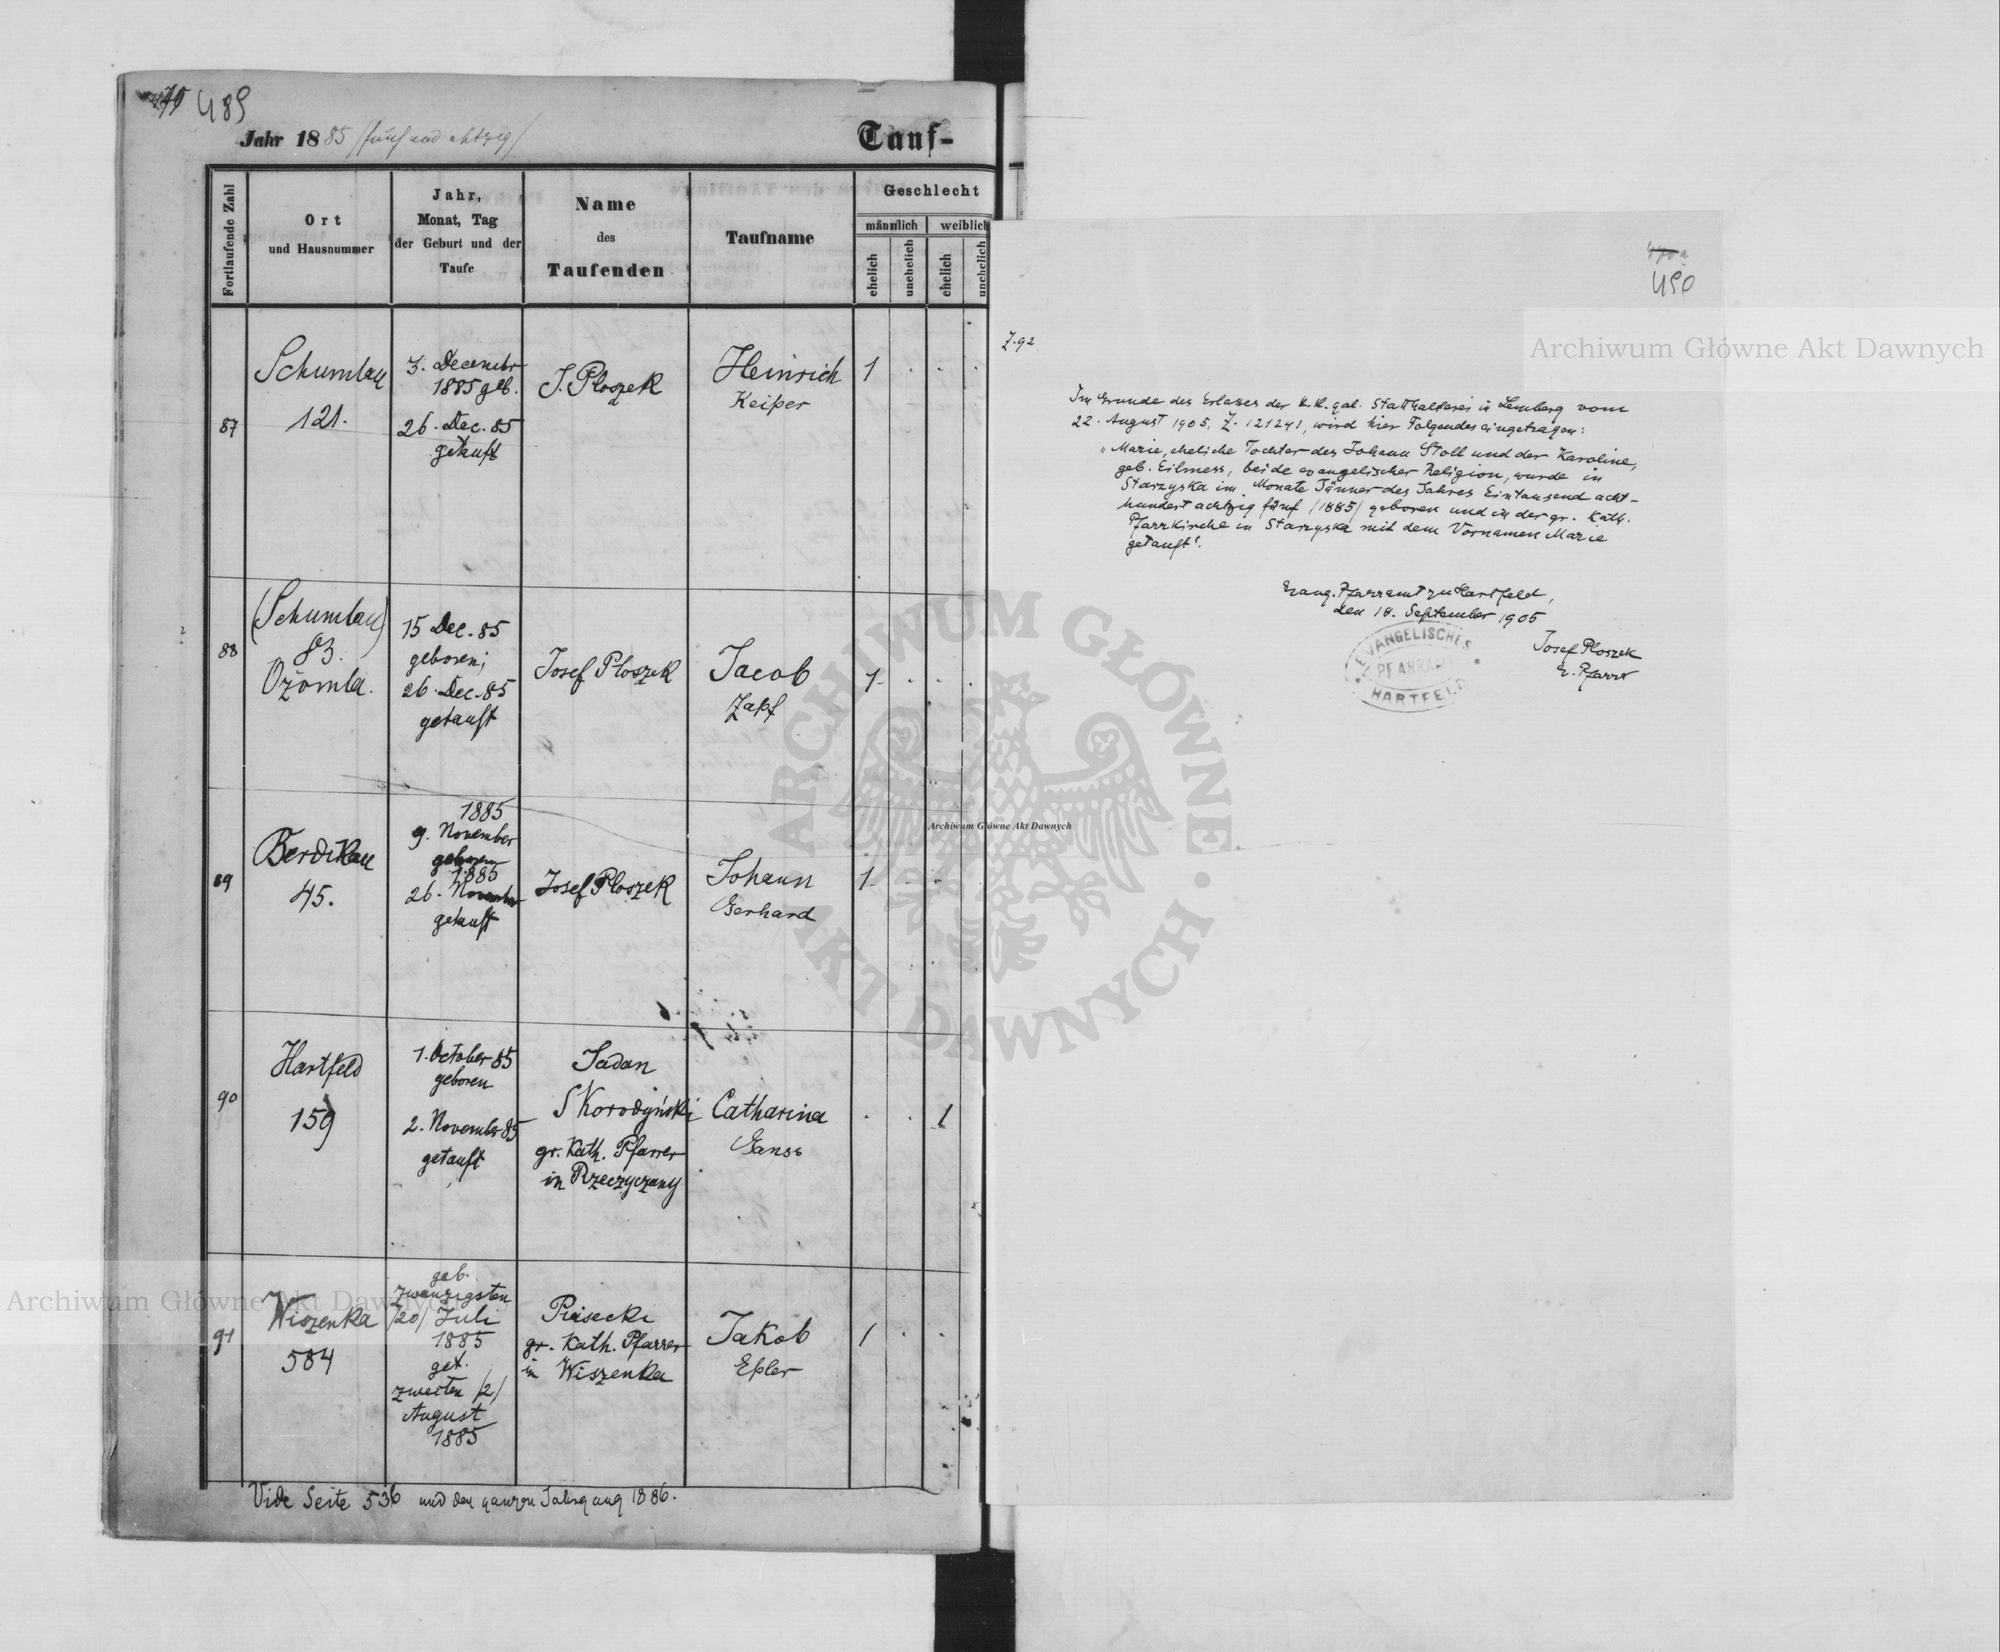 489
Jahr 1885 /fünf und achtzig/
Tauf-
Fortlaufende Zahl
Ort
und Hausnummer
Jahr,
Monat, Tag
der Geburt und der
Taufe
Name
des
Taufenden
Taufname
Geschlecht
männlich
weiblich
ehelich
unehelich
ehelich
unehelich
87
Schumlau
121.
3. Decembr
1885 geb.
26. Dec. 85
getauft
J. Ploszek
Heinrich
Keiper
1
88
(Schumlau)
83.
Ożomla.
15 Dec. 85
geboren;
26. Dec. 85
getauft
Josef Ploszek
Jacob
Zapf
1
89
Berdikau
45.
1885
9. November
geboren
1885
26. November
getauft
Josef Ploszek
Johann
Gerhard
1
90
Hartfeld
159
1. October 85
geboren
2. Novembr 85
getauft
Jadan
Skorodyński
gr. Kath. Pfarrer
in Rzeczyczany
Catharina
Gans
1
91
Wiszenka
584
geb.
zwanzigsten
/20/ Juli
1885
get.
zweiten /2/
August
1885
Piasecki
gr. Kath. Pfarrer
in Wiszenka
Jakob
Eßler
1
Vide Seite 536 und den ganzen Jahrgang 1886.
490
Z. 92
Im Grunde des Erlasses der k.k. gal. Statthalterei in Lemberg vom
22. August 1905, Z. 121241, wird hier Folgendes eingetragen:
"Marie, eheliche Tochter des Johann Stoll und der Karoline,
geb. Eilmess, beide evangelischer Religion, wurde in
Starzyska im Monate Jänner des Jahres Eintausend acht-
hundert achtzig fünf /1885/ geboren und in der gr. Kath.
Pfarrkirche in Starzyska mit dem Vornamen Marie
getauft".
Evang. Pfarramt zu Hartfeld,
den 18. September 1905
EVANGELISCHES
PFARRAMT
HARTFELD
Josef Ploszek
E. Pfarrer
Archiwum Główne Akt Dawnych
ARCHIWUM GŁÓWNE AKT DAWNYCH
Archiwum Główne Akt Dawnych
Archiwum Główne Akt Dawnych